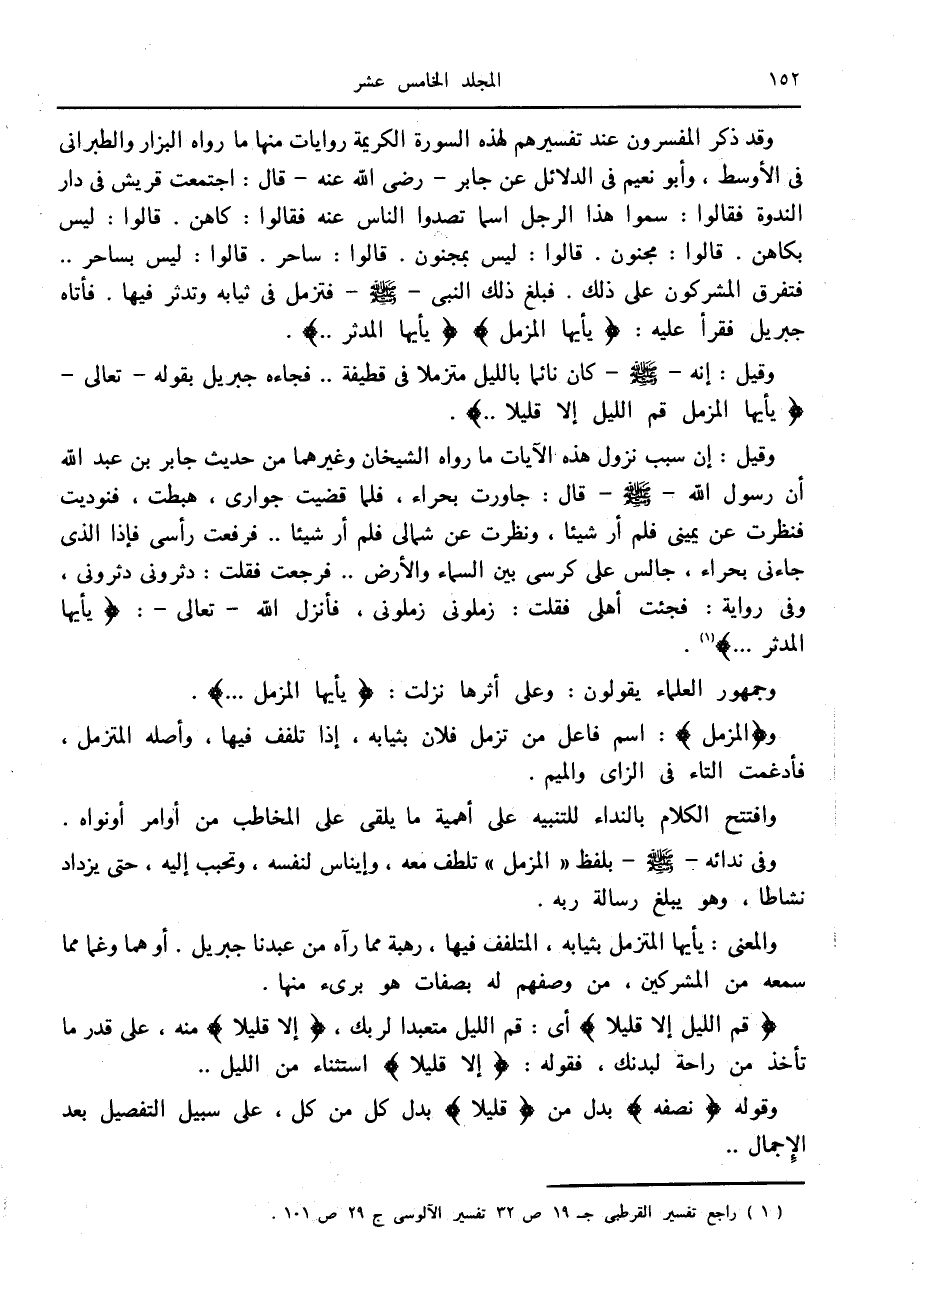 ١٥٢ المجلد الخامس عشر
وقد ذكر المفسرون عند تفسيرهم لهذه السورة الكريمة روايات منها ما رواه البزار والطبرانى
فى الأوسط ، وأبو نعيم فى الدلائل عن جابر – رضى الله عنه – قال : اجتمعت قريش فى دار
الندوة فقالوا : سموا هذا الرجل اسما تصدوا الناس عنه فقالوا : كاهن . قالوا : ليس
بكاهن . قالوا : مجنون . قالوا : ليس بمجنون . قالوا : ساحر . قالوا : ليس بساحر ..
فتفرق المشركون على ذلك . فبلغ ذلك النبى – ﷺ – فتزمل فى ثيابه وتدثر فيها . فأتاه
جبريل فقرأ عليه : ﴿ يأيها المزمل ﴾ ﴿ يأيها المدثر ..﴾ .
وقيل : إنه – ﷺ – كان نائما بالليل متزملا فى قطيفة .. فجاءه جبريل بقوله – تعالى –
﴿ يأيها المزمل قم الليل إلا قليلا ..﴾ .
وقيل : إن سبب نزول هذه الآيات ما رواه الشيخان وغيرهما من حديث جابر بن عبد الله
أن رسول الله – ﷺ – قال : جاورت بحراء ، فلما قضيت جوارى ، هبطت ، فنوديت
فنظرت عن يمينى فلم أر شيئا ، ونظرت عن شمالى فلم أر شيئا .. فرفعت رأسى فإذا الذى
جاءنى بحراء ، جالس على كرسى بين السماء والأرض .. فرجعت فقلت : دثرونى دثرونى ،
وفى رواية : فجئت أهلى فقلت : زملونى زملونى ، فأنزل الله – تعالى – : ﴿ يأيها
المدثر ...﴾(١) .
وجمهور العلماء يقولون : وعلى أثرها نزلت : ﴿ يأيها المزمل ...﴾ .
و﴿المزمل ﴾ : اسم فاعل من تزمل فلان بثيابه ، إذا تلفف فيها ، وأصله المتزمل ،
فأدغمت التاء فى الزاى والميم .
وافتتح الكلام بالنداء للتنبيه على أهمية ما يلقى على المخاطب من أوامر أونواه .
وفى ندائه – ﷺ – بلفظ « المزمل » تلطف معه ، وإيناس لنفسه ، وتحبب إليه ، حتى يزداد
نشاطا ، وهو يبلغ رسالة ربه .
والمعنى : يأيها المتزمل بثيابه ، المتلفف فيها ، رهبة مما رآه من عبدنا جبريل . أو هما وغما مما
سمعه من المشركين ، من وصفهم له بصفات هو برىء منها .
﴿ قم الليل إلا قليلا ﴾ أى : قم الليل متعبدا لربك ، ﴿ إلا قليلا ﴾ منه ، على قدر ما
تأخذ من راحة لبدنك ، فقوله : ﴿ إلا قليلا ﴾ استثناء من الليل ..
وقوله ﴿ نصفه ﴾ بدل من ﴿ قليلا ﴾ بدل كل من كل ، على سبيل التفصيل بعد
الإجمال ..
( ١ ) راجع تفسير القرطبى جـ ١٩ ص ٣٢ تفسير الآلوسى ج ٢٩ ص ١٠١ .